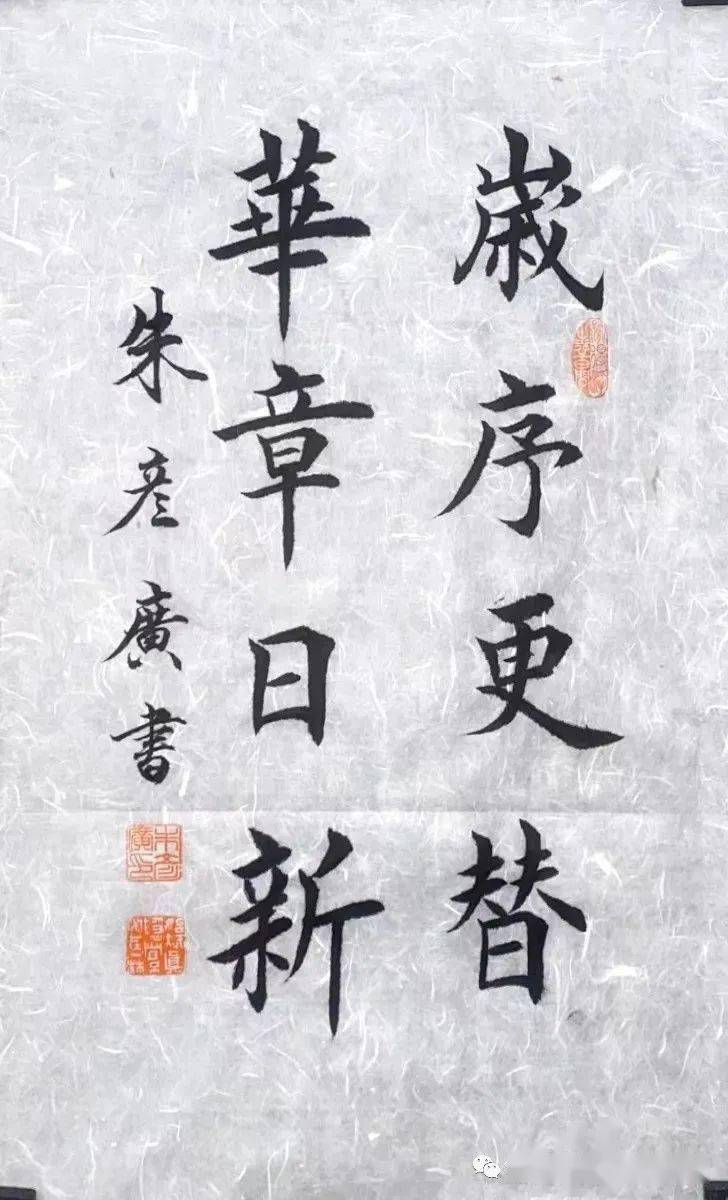 歲序更替
華章日新
朱彥廣書